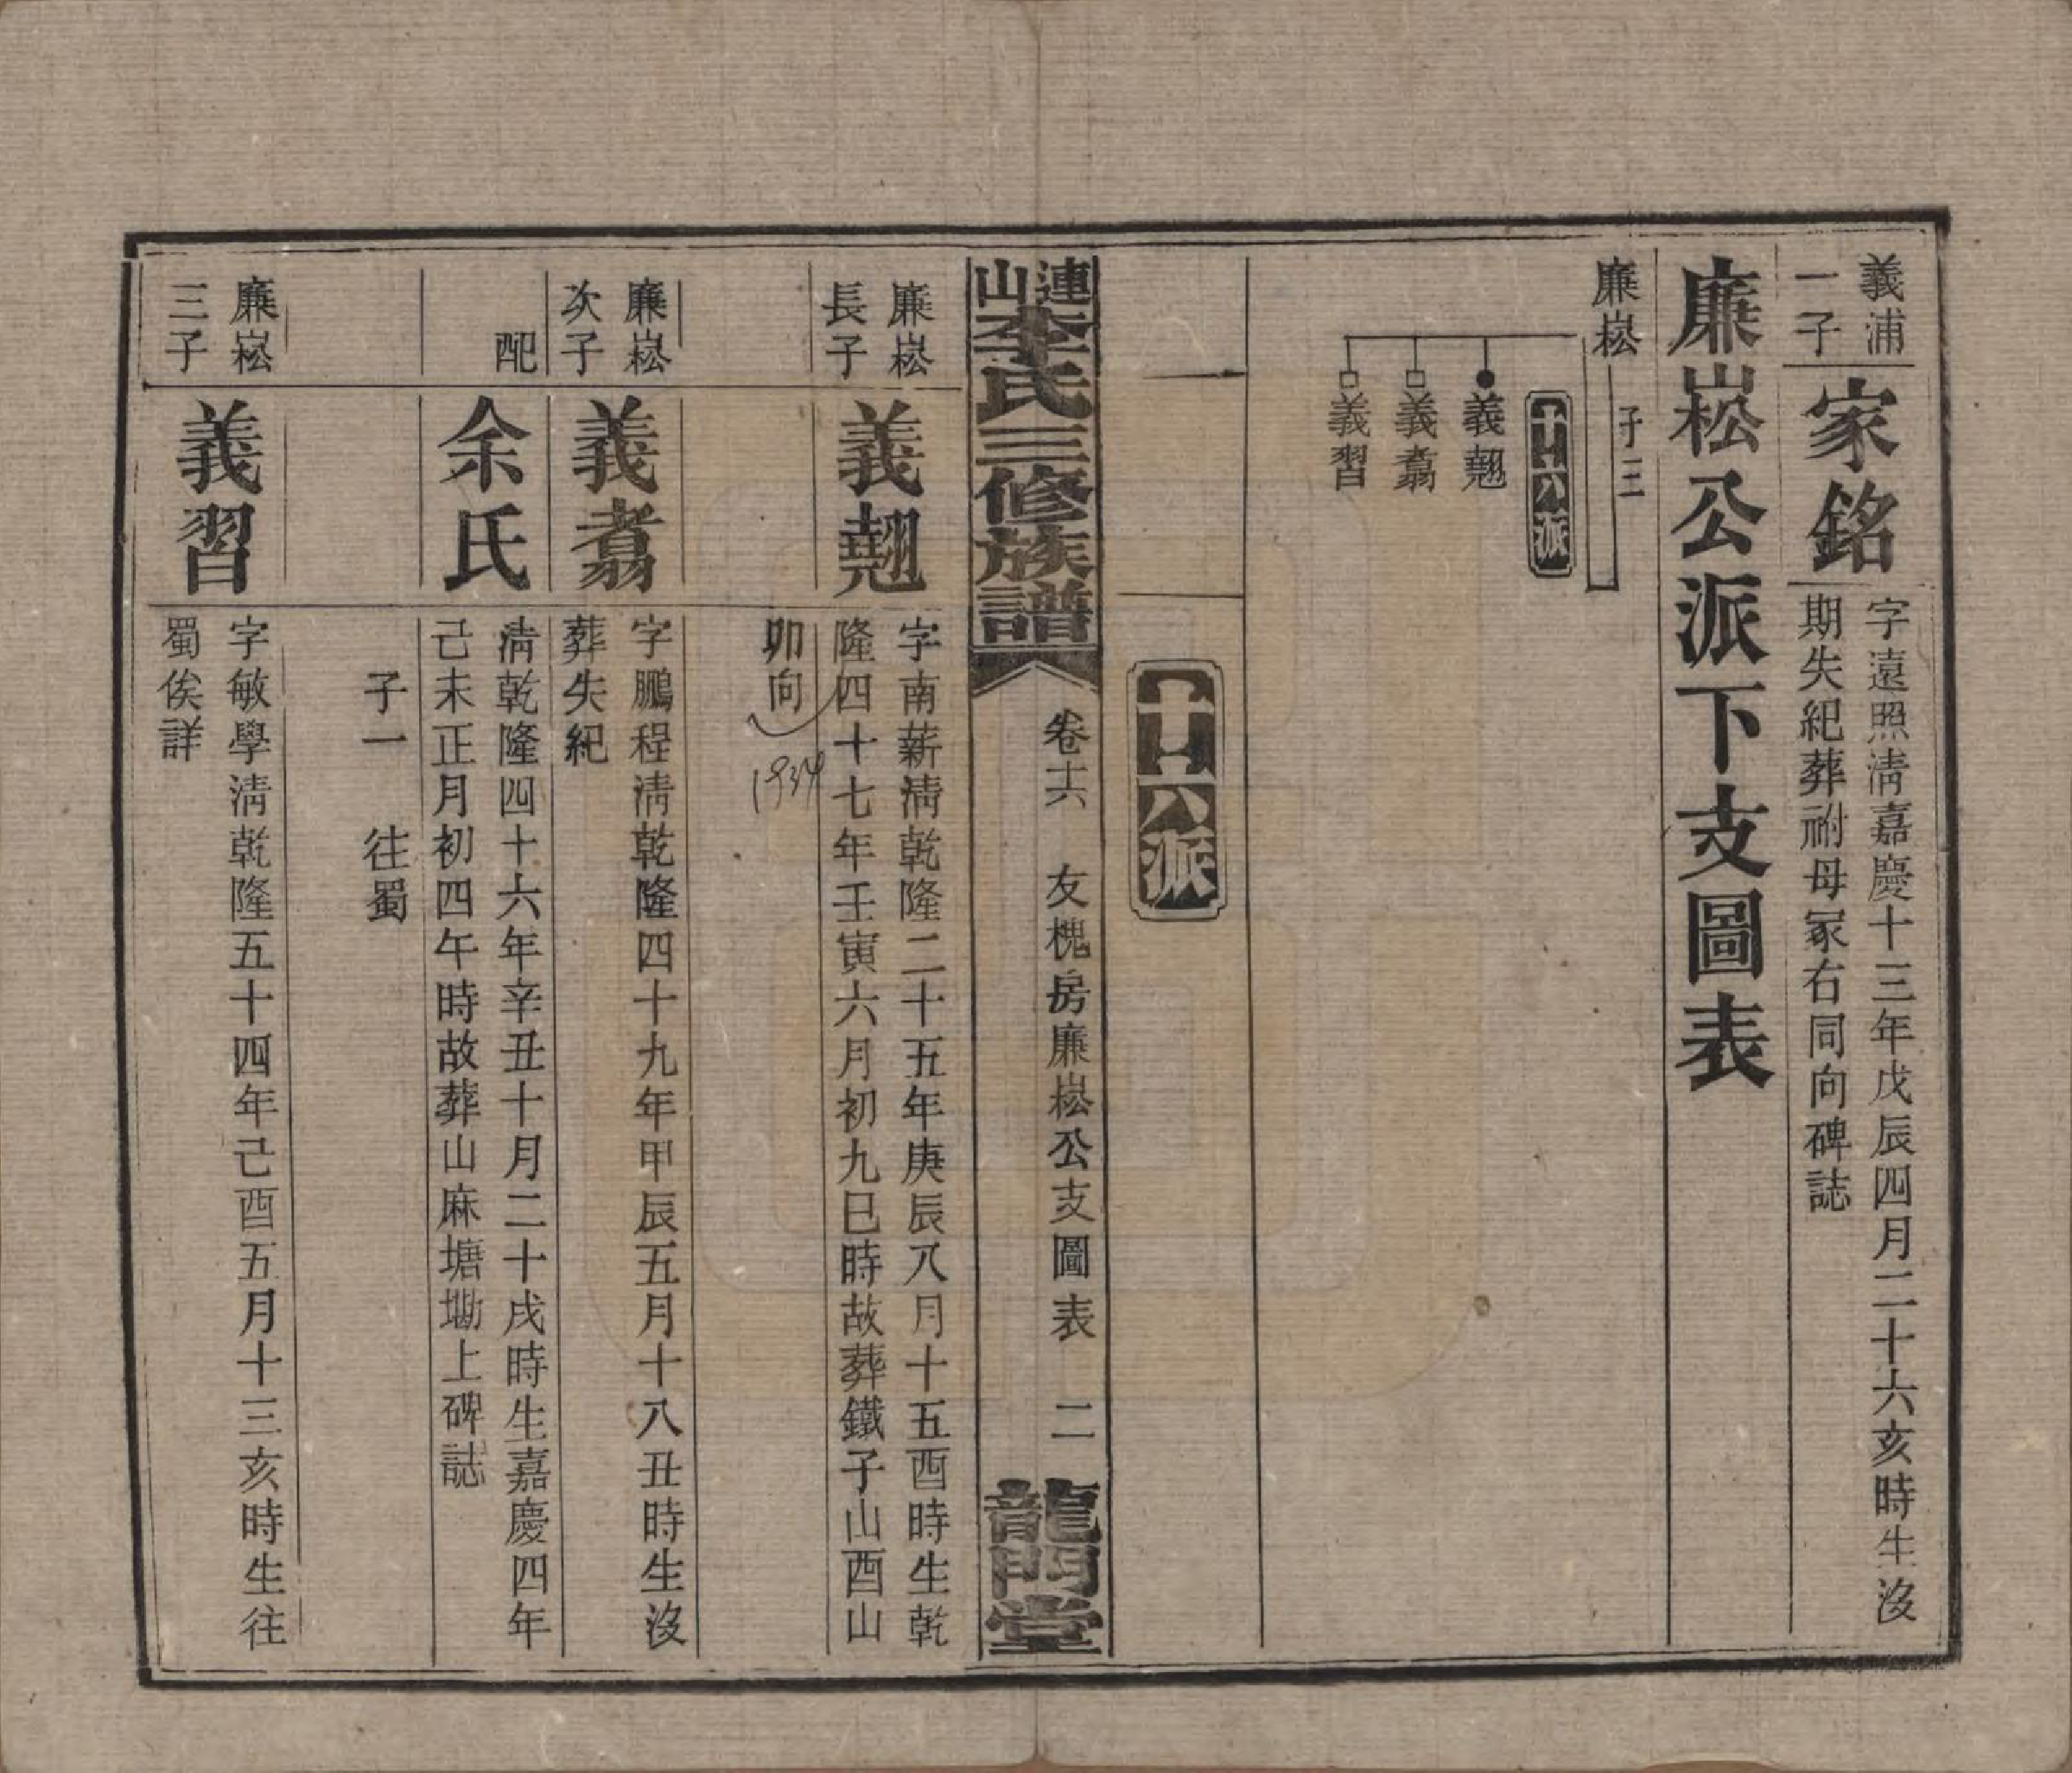 義浦
一子
家銘
字遠照淸嘉慶十三年戊辰四月二十六亥時生沒
期失紀葬祔母冢右同向碑誌
廉崧公派下支圖表
廉崧
子三
十八派
義翹
義翥
義習
十八派
連山李氏三修族譜
卷十六 友槐房廉崧公支圖表 二
龍門堂
廉崧
長子
義翹
字南薪淸乾隆二十五年庚辰八月十五酉時生乾
隆四十七年壬寅六月初九巳時故葬鐵子山酉山
卯向
1934
廉崧
次子
義翥
字鵬程淸乾隆四十九年甲辰五月十八丑時生沒
葬失紀
配
余氏
淸乾隆四十六年辛丑十月二十戌時生嘉慶四年
己未正月初四午時故葬山麻塘塝上碑誌
子一 往蜀
廉崧
三子
義習
字敏學淸乾隆五十四年己酉五月十三亥時生往
蜀俟詳